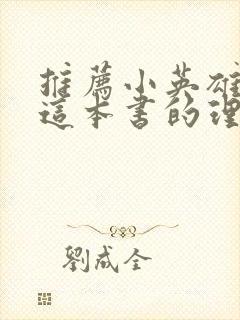 推薦小英雄
這本書的理
劉成全